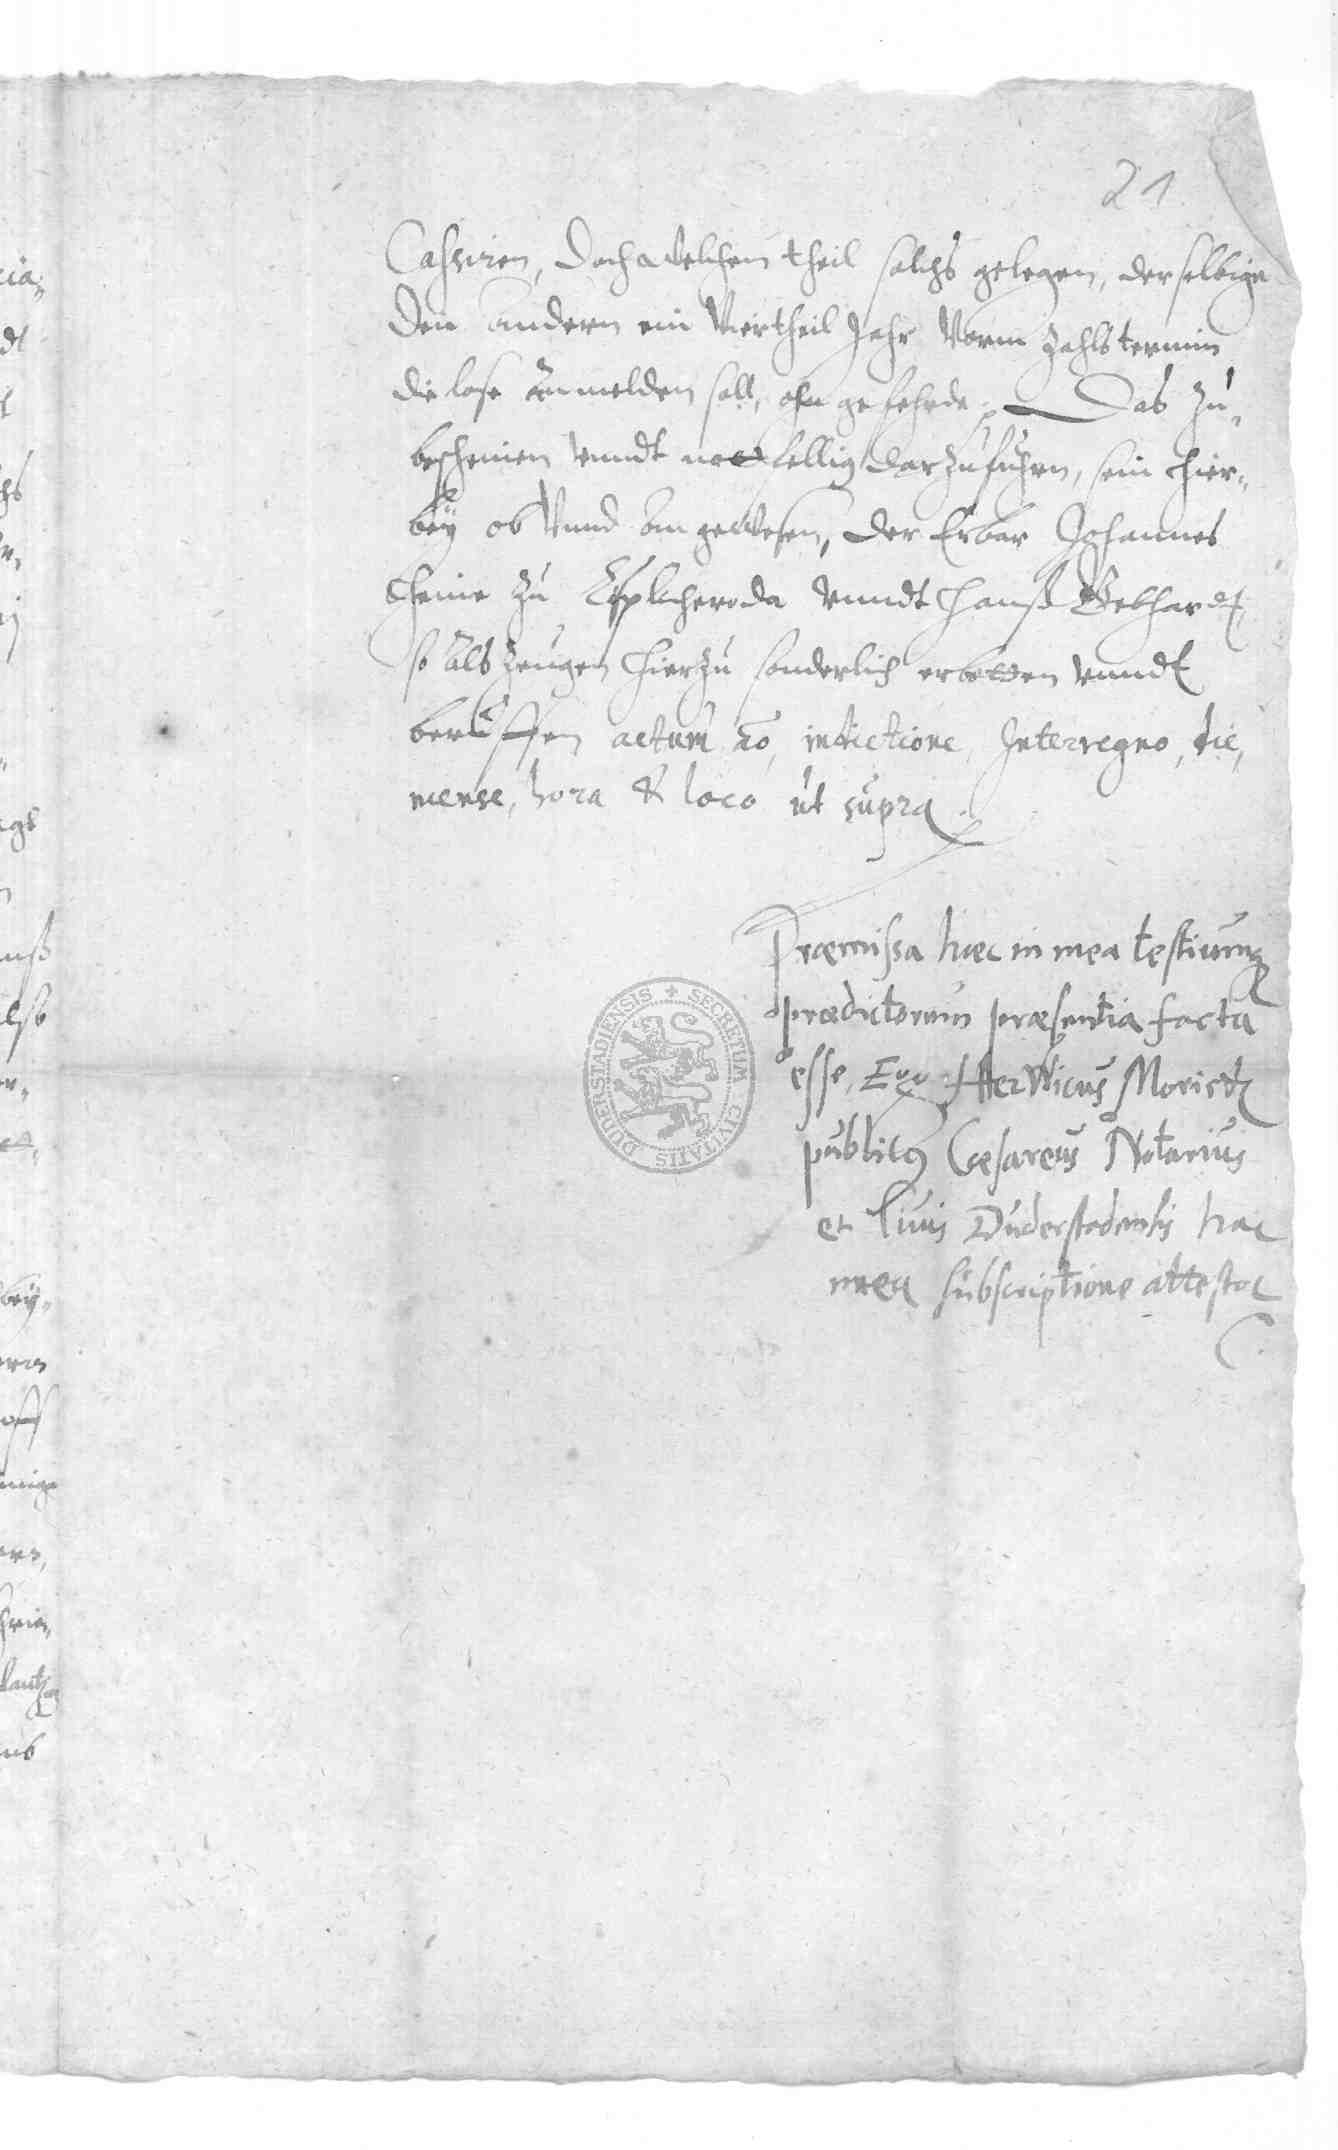 21
Cassiren, Doch welchem theil solchs gelegen, derselbige
den andern ein Viertheil Jahr Vorm Zahlstermin
die lose anmelden soll, ohn gefehrde. Das zu-
bescheinen vnndt notfellig darzuführen, sein hier-
bey ob vnnd an gewesen, der Erbar Johannes
Heine zu vnndt Hanß Gebhardt,
so als Zeugen hierzu sonderlich erbetten vnndt
beruffen actum ao, indictione, Interregno, die,
mense, hora & loco ut supra.
Præmissa hæc in mea testiumq
prædictorum præsentia facta
esse, Ego Herwicus Moritz
publicq Cæsareus Notarius
et Civis Duderstadensis hac
mea subscriptione attestor
SECRETUM CIVITATIS DUDERSTADIENSIS